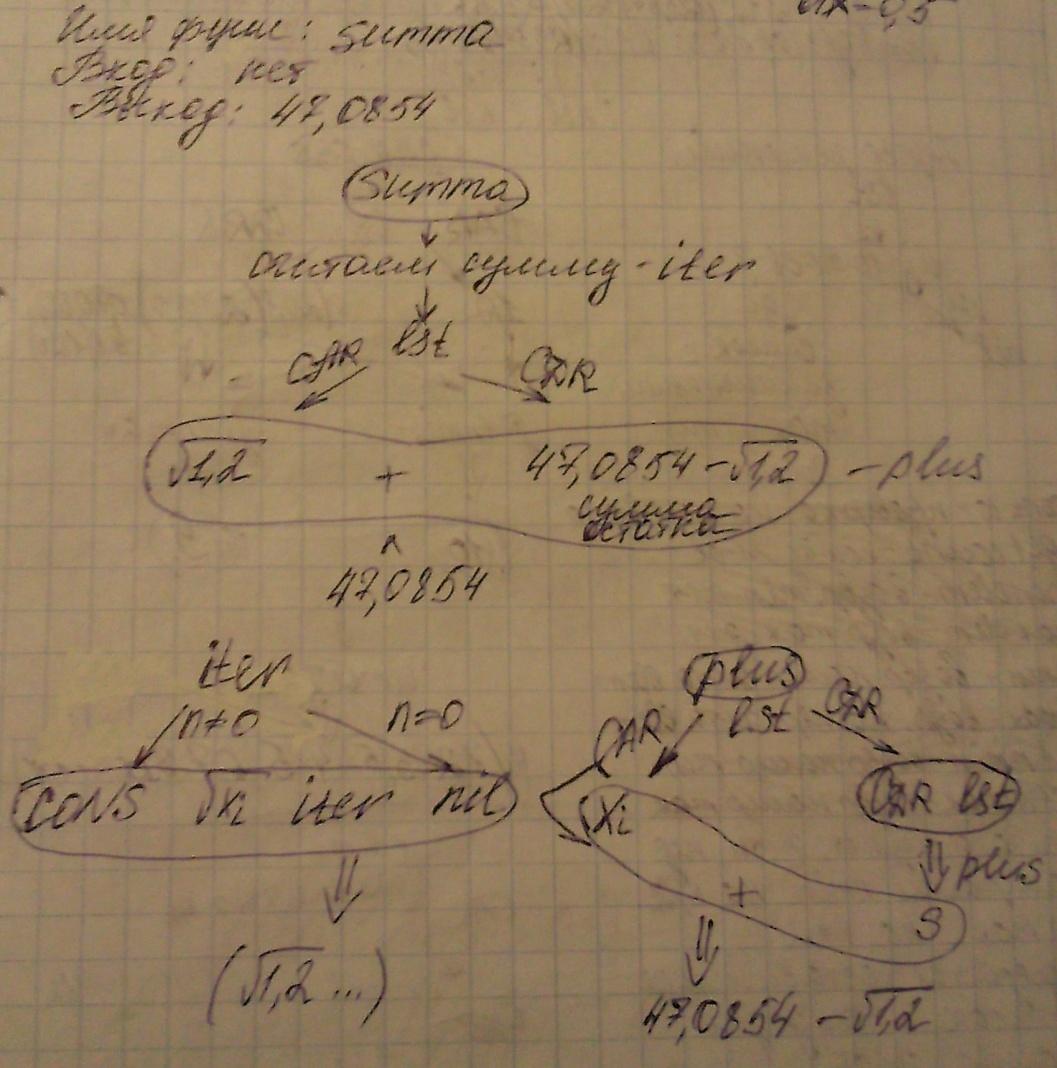 dx=0,5
Имя функ: summa
Вход: нет
Выход: 47,0854
summa
считаем сумму - iter
lst
CAR CDR
√1,2 + 47,0854 - √1,2 - plus
сумма
остатка
47,0854
iter
n≠0 n=0
CONS √xi iter nil
(√1,2 ...)
plus
lst
CAR CDR
Xi CDR lst
plus
+ S
47,0854 - √1,2